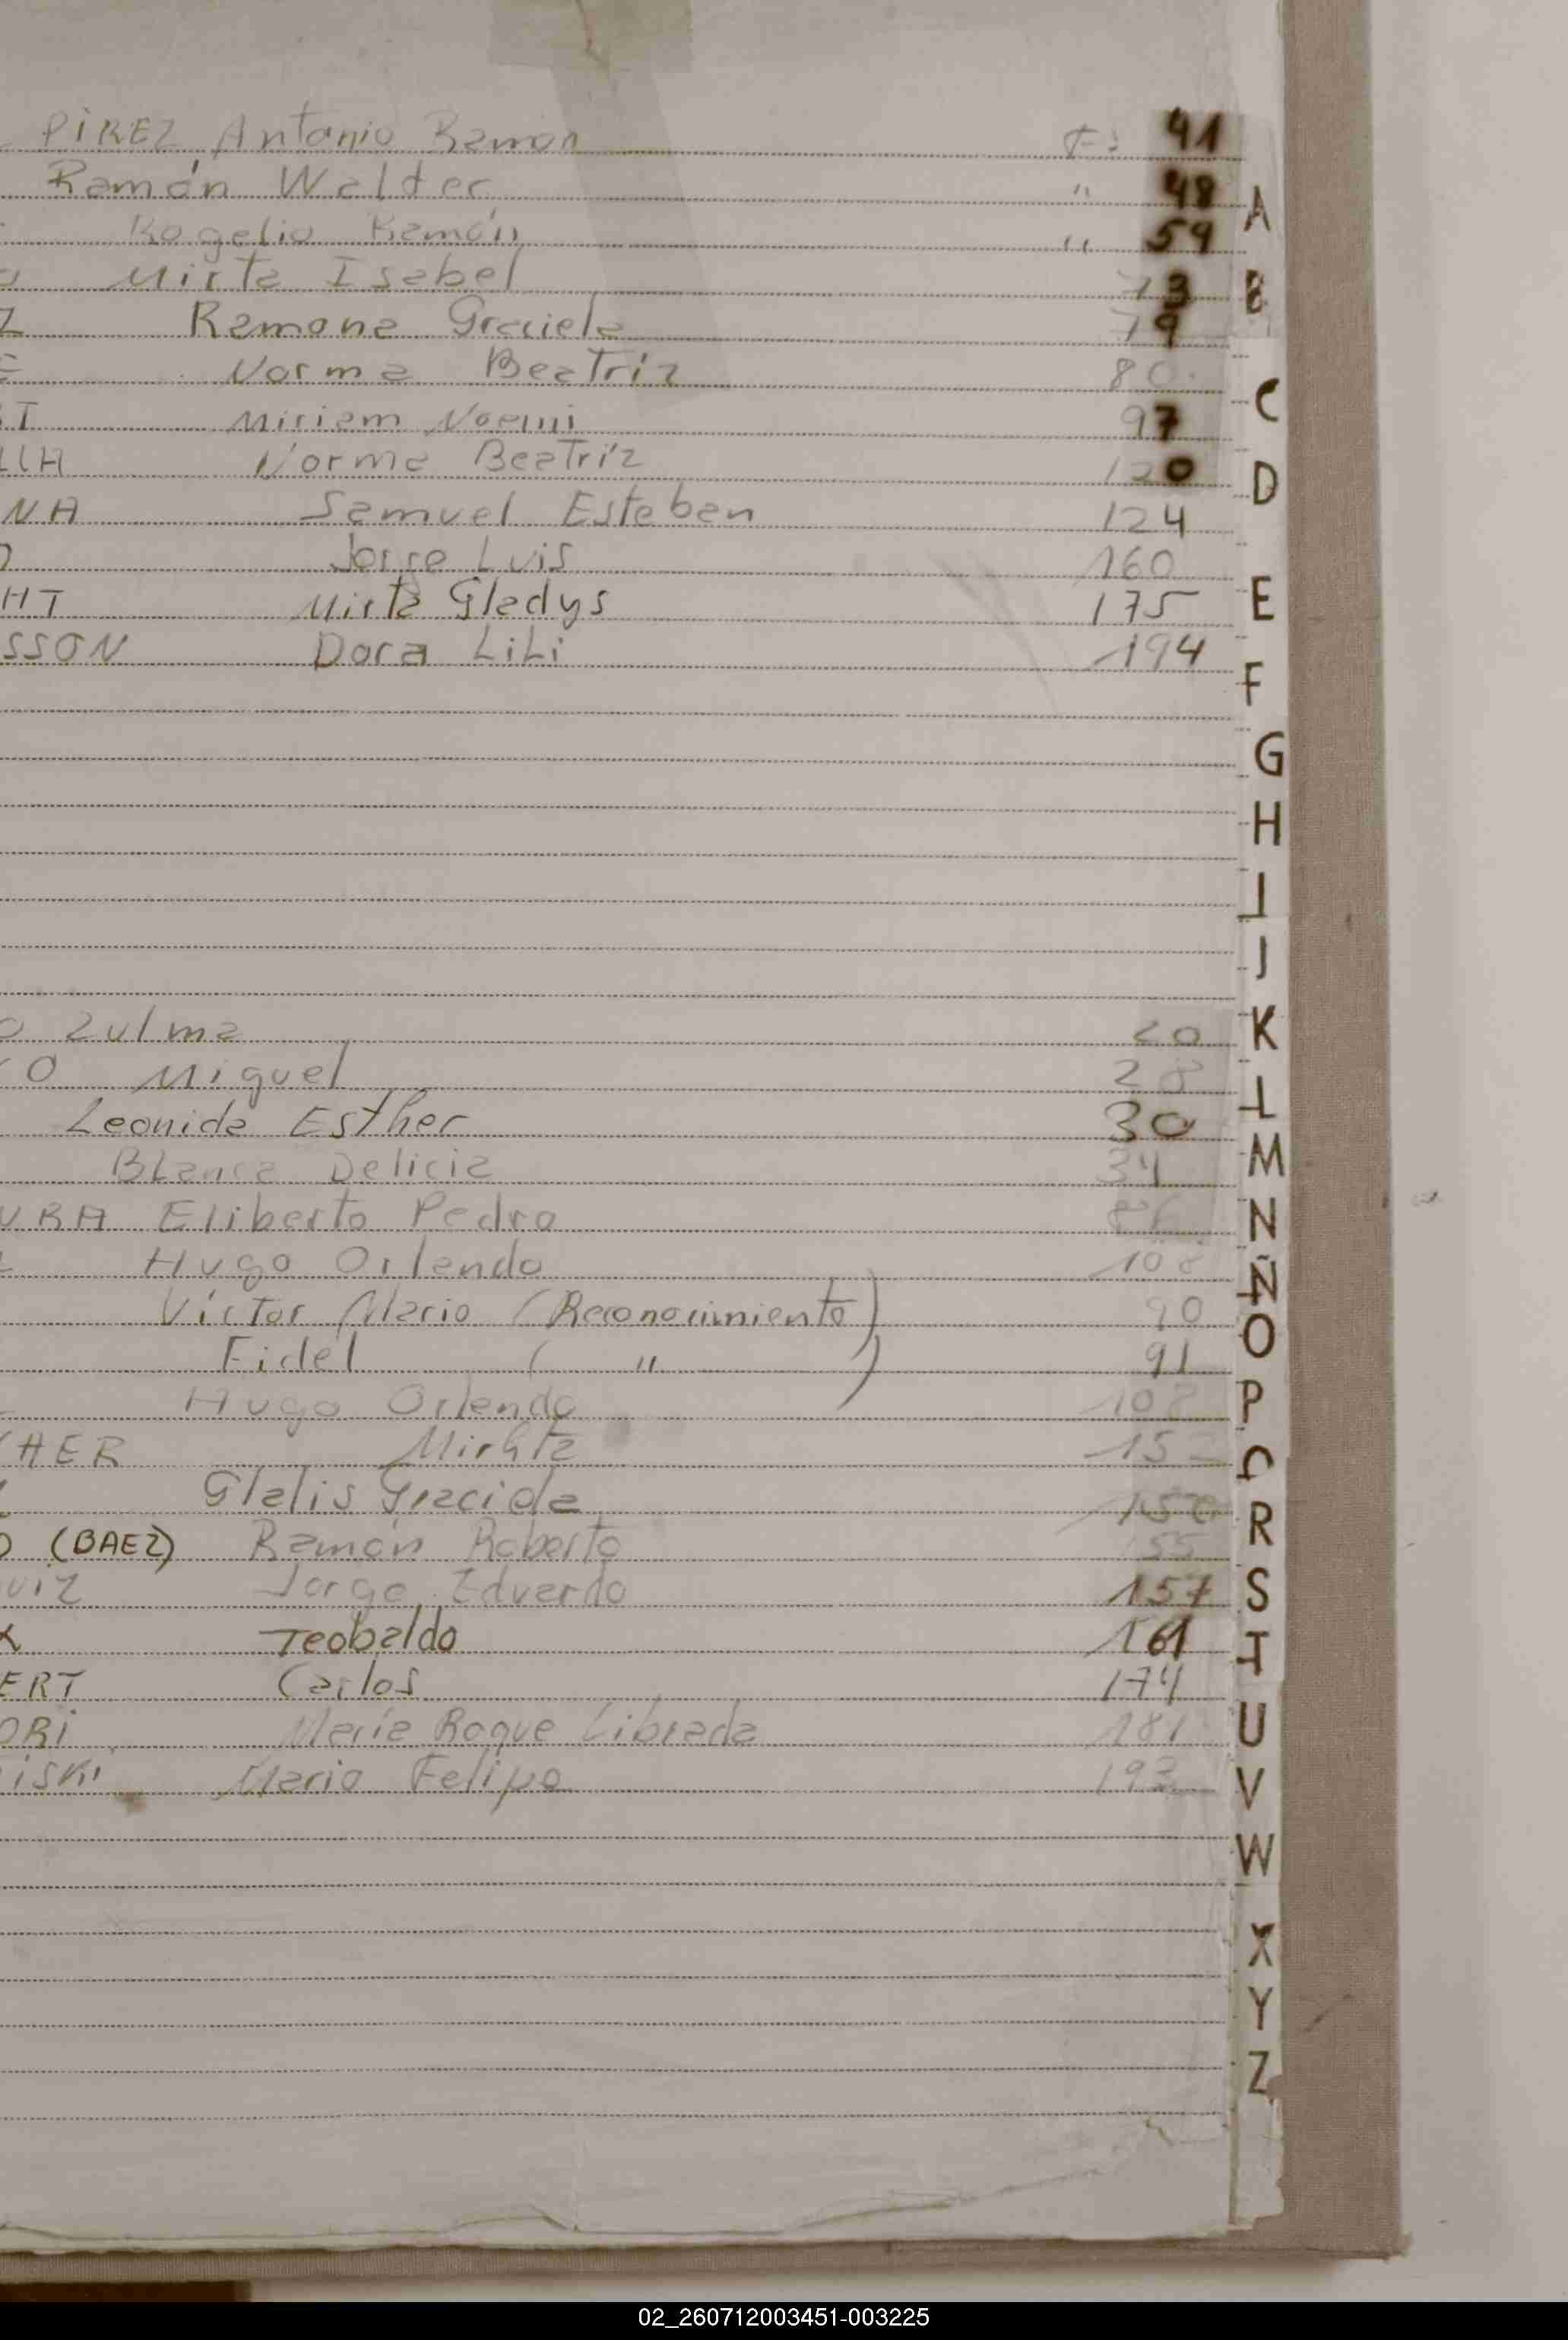 PIREZ Antonio Ramon F: 41
Ramón Walter " 48
Rogelio Ramón " 59
Mirta Isabel 73
Z Ramona Graciela 79
Norma Beatriz 80
Miriam Noemi 97
Norma Beatriz 120
NA Samuel Esteban 124
Jorge Luis 160
HT Mirta Gladys 175
SSON Dora LiLi 194
O Zulma 20
O Miguel 28
Leonida Esther 30
Blanca Delicia 34
URA Eliberto Pedro
Hugo Orlando 108
Víctor Mario (Reconocimiento) 90
Fidel ( " ) 91
Hugo Orlando 108
HER Mirhta
Glalis Graciela 150
O (BAEZ) Ramón Roberto 155
UIZ Jorge Eduardo 157
Teobaldo 161
ERT Carlos 174
ORi María Roque Librada 181
iSKi Mario Felipe 193
A
B
C
D
E
F
G
H
I
J
K
L
M
N
Ñ
O
P
R
S
T
U
V
W
X
Y
Z
02_260712003451-003225